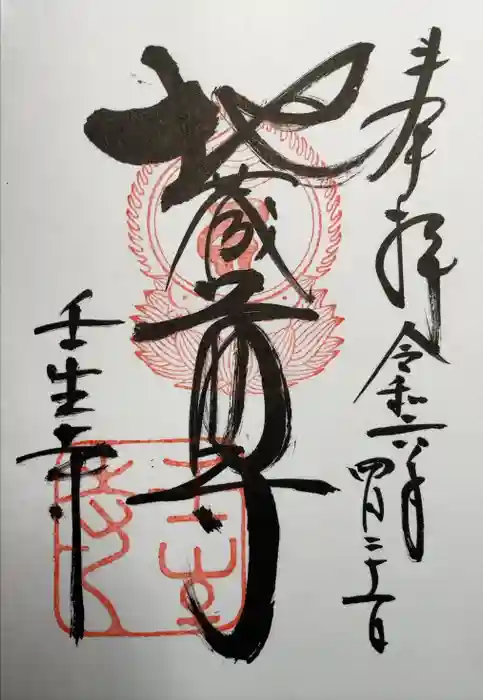 奉拝
令和六年
四月二十一日
地蔵尊
壬生寺